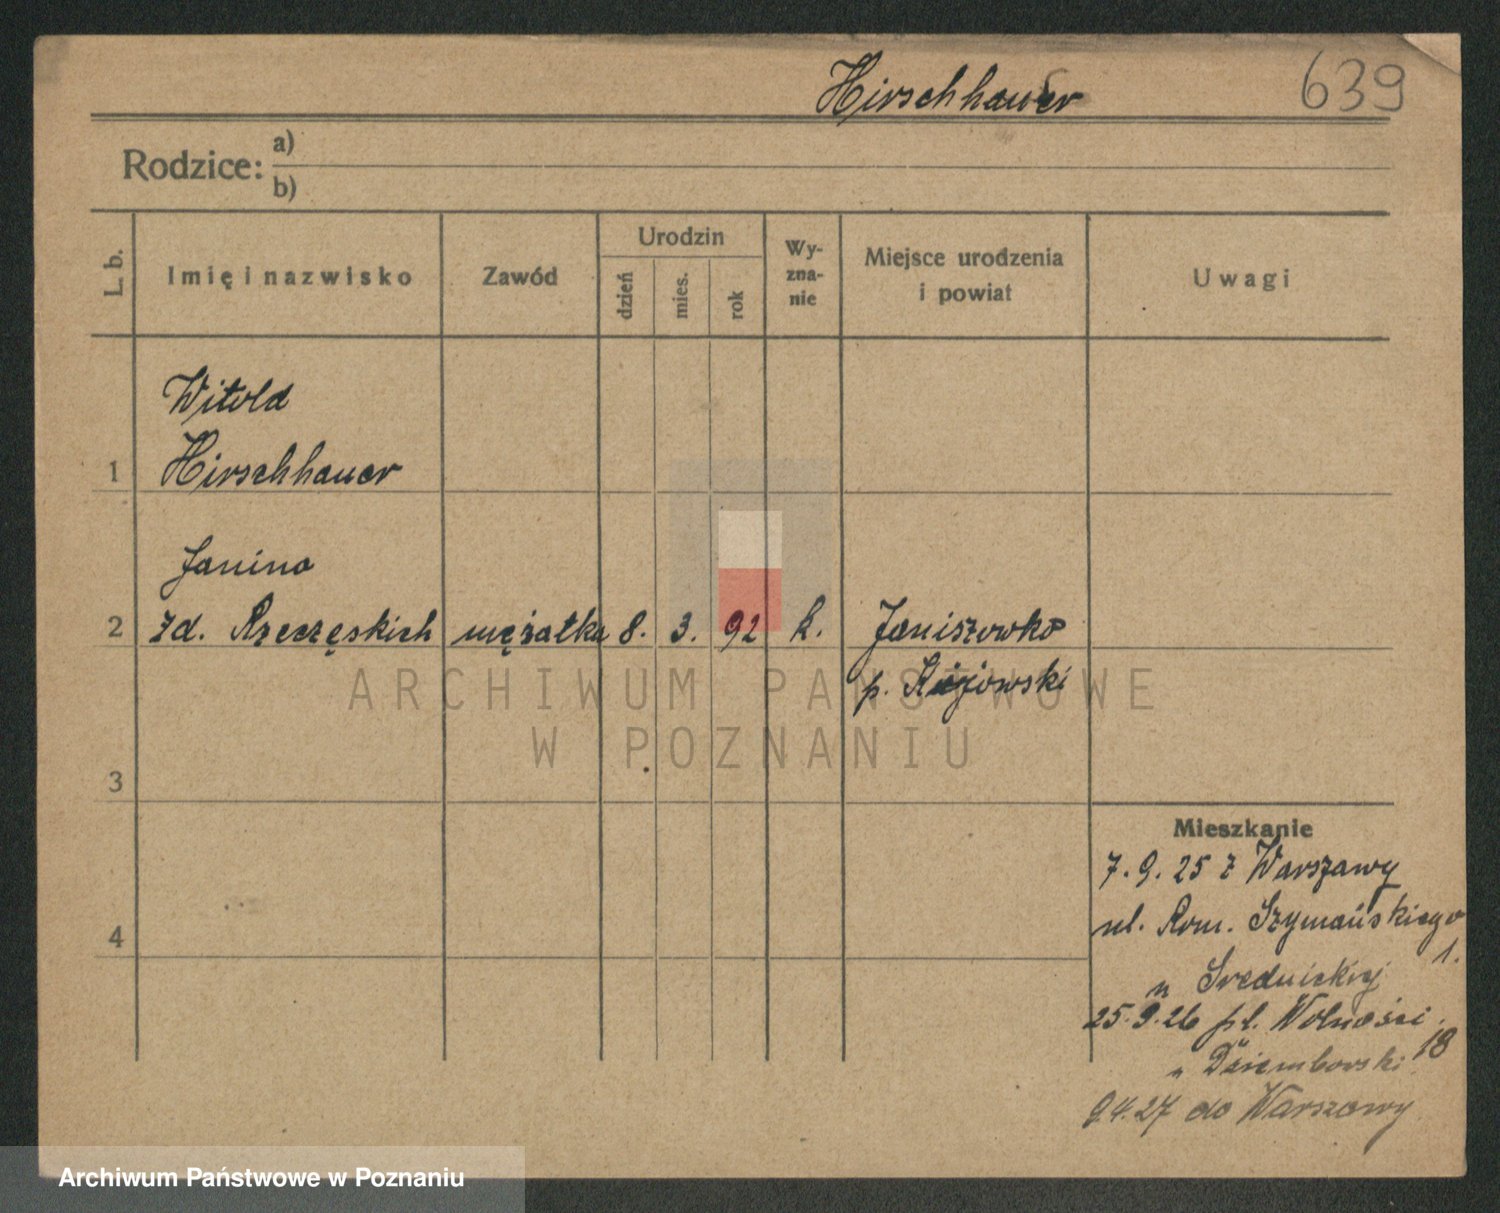 Hirschhauer
639
Rodzice: a)
b)
L. b.
Imię i nazwisko
Zawód
Urodzin
dzień
mies.
rok
Wy-
zna-
nie
Miejsce urodzenia
i powiat
Uwagi
Witold
1 Hirschhauer
Janina
2 zd. Rzeczęskich mężatka 8. 3. 92 k. Janiszewko
p. Kijowski
ARCHIWUM PAŃSTWOWE
W POZNANIU
3
Mieszkanie
7.9.25 z Warszawy
ul. Rom. Szymańskiego
1.
4
u Srednickiej
25.9.26 pl. Wolności
18
u Dziembowski
9.4.27 do Warszawy
Archiwum Państwowe w Poznaniu